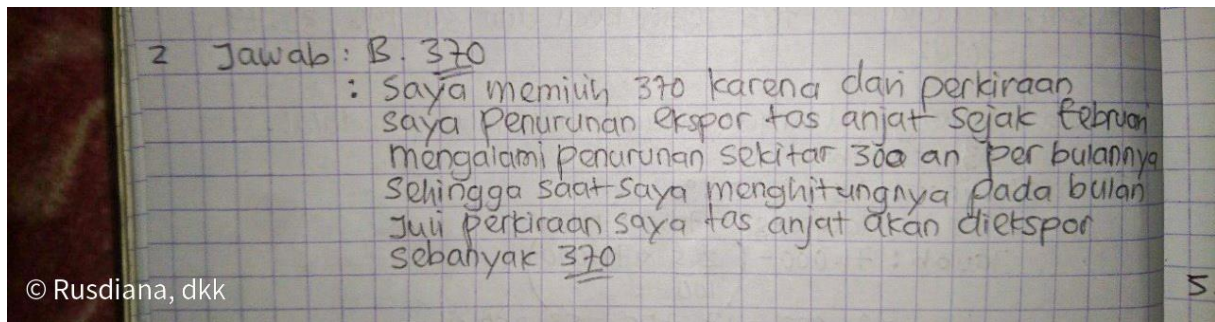 2 Jawab : B. 370
: Saya memilih 370 karena dari perkiraan
saya Penurunan ekspor tas anjat sejak Februari
mengalami penurunan sekitar 300 an per bulannya
Sehingga saat saya menghitungnya pada bulan
Juli perkiraan saya tas anjat akan diekspor
sebanyak 370
5.
© Rusdiana, dkk